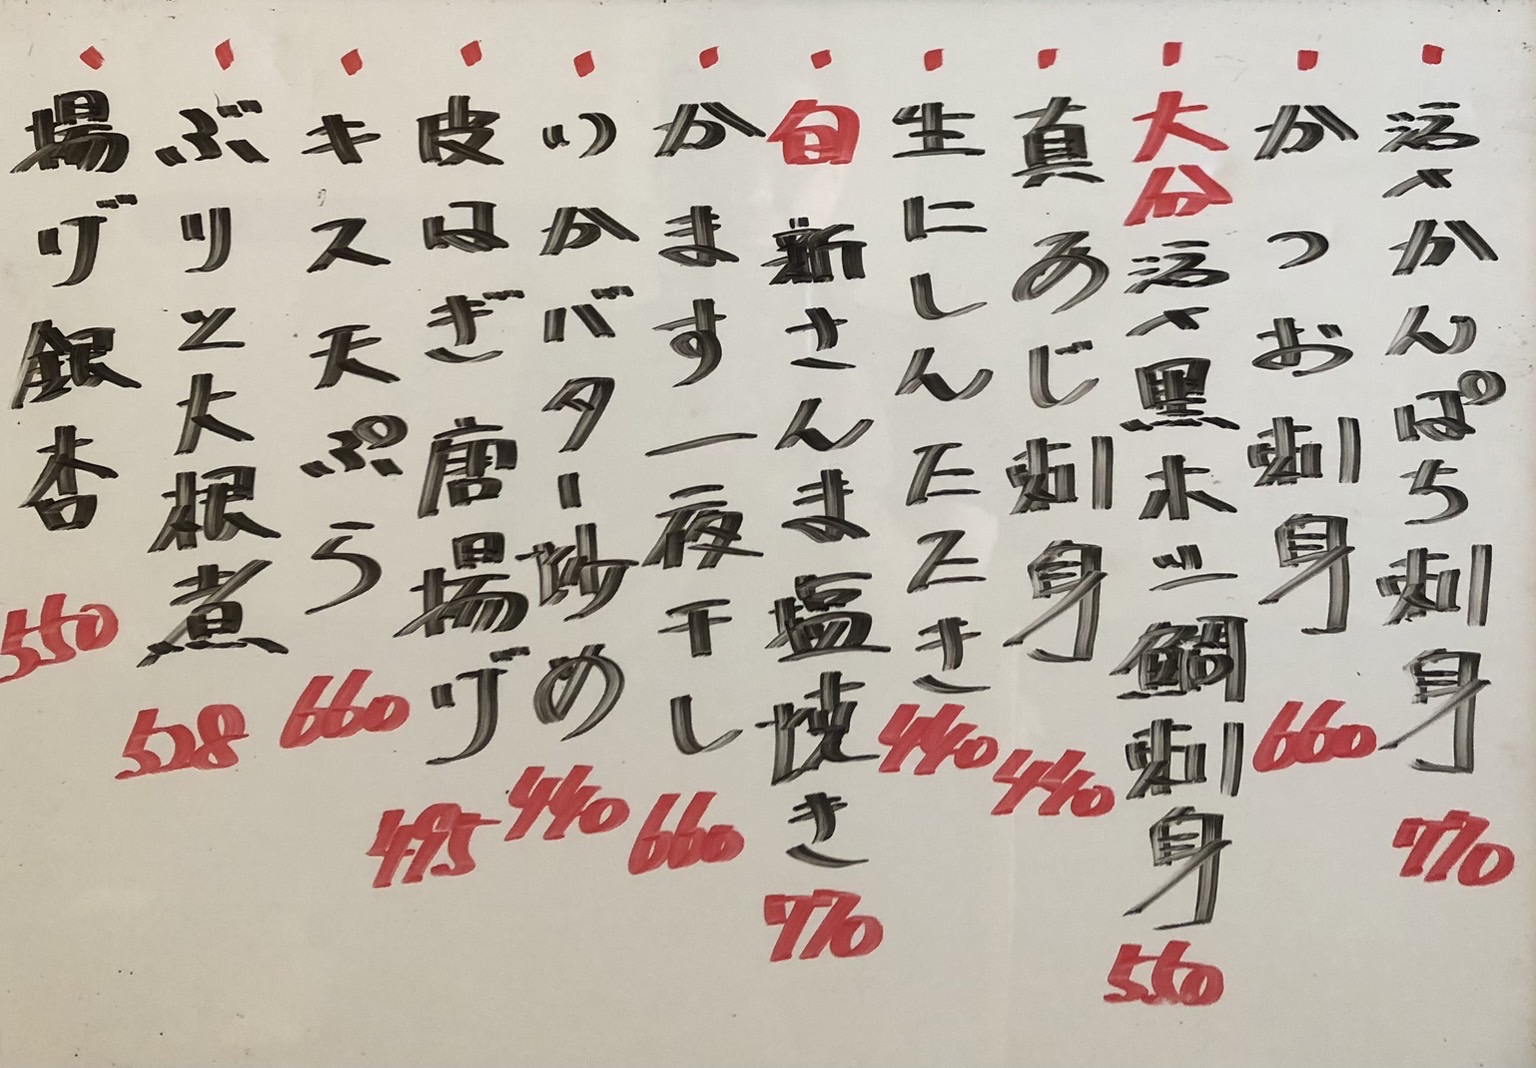 活〆かんぱち刺身 770
かつお刺身 660
大分活〆黒木ジ鯛刺身 550
真あじ刺身 440
生にしんたたき 440
旬 新さんま塩焼き 770
かます一夜干し 660
いかバター炒め 440
皮はぎ唐揚げ 495
キス天ぷら 660
ぶりと大根煮 528
揚げ銀杏 550